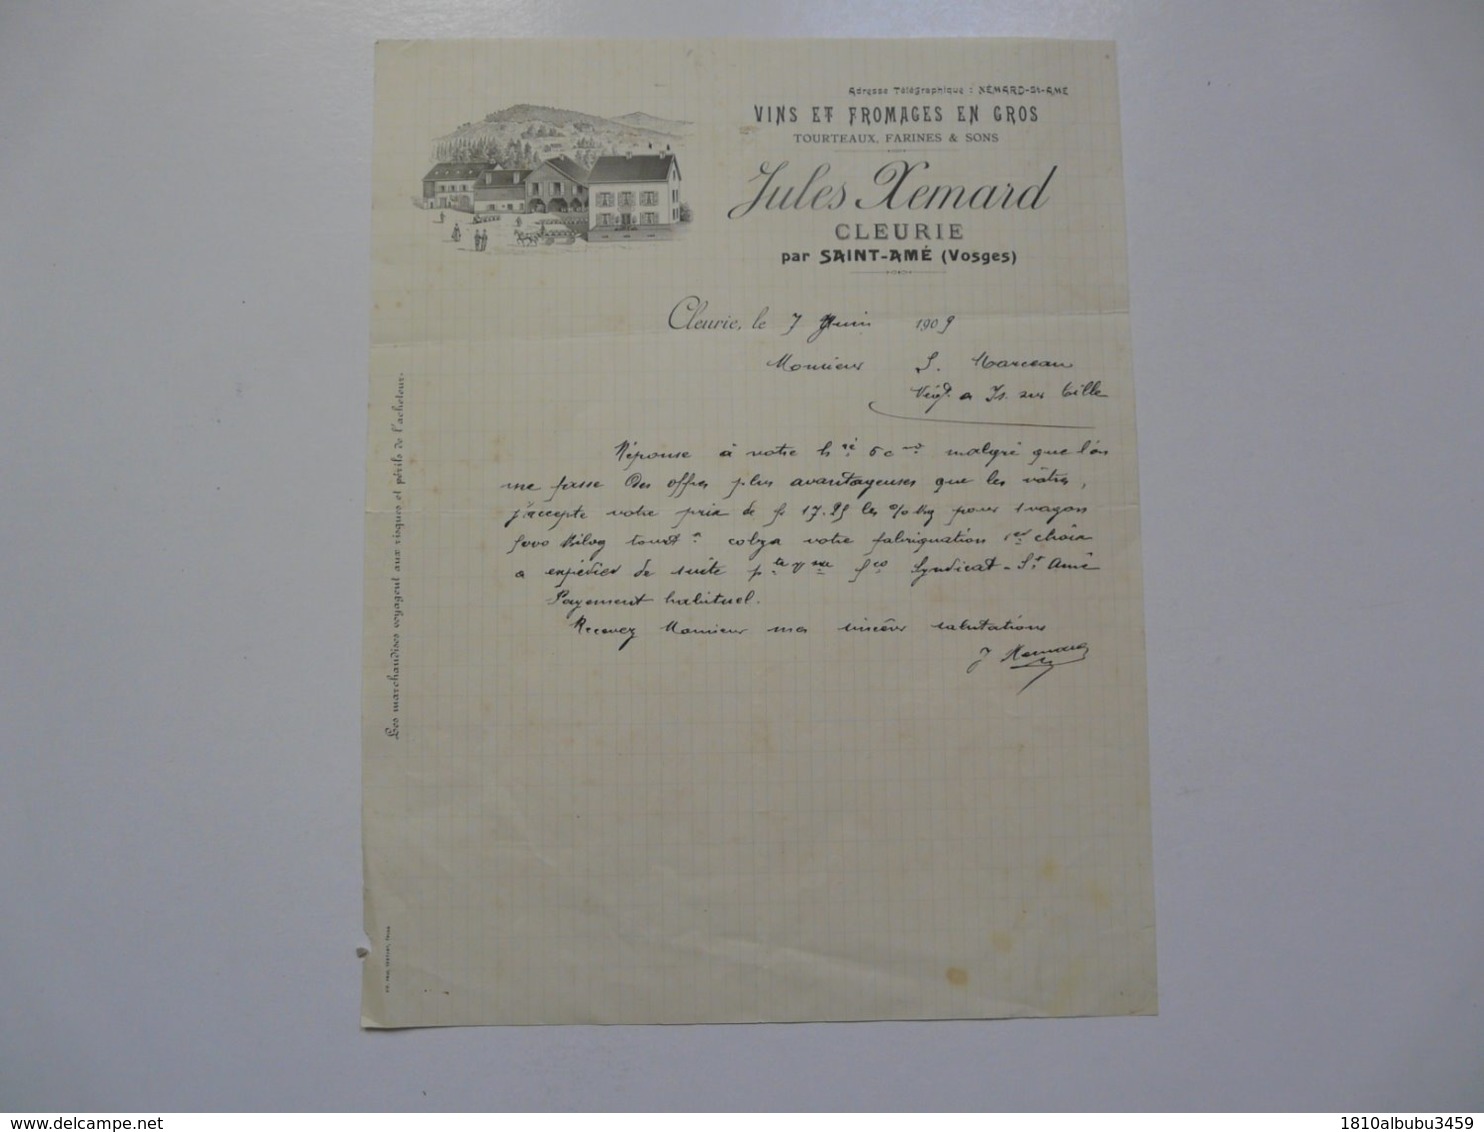 Adresse Télégraphique : XEMARD-St-AMÉ
VINS ET FROMAGES EN GROS
TOURTEAUX, FARINES & SONS
Jules Xemard
CLEURIE
par SAINT-AMÉ (Vosges)
Cleurie, le 7 Juin 1909
Monsieur S. Marceau
à Is. sur Tille
Réponse à votre malgré que l'on
me fasse des offres plus avantageuses que les vôtres,
j'accepte votre prix de fr 17.25 les %Kg pour 1 wagon
5000 Kilog tourt colza votre fabriquation 1er choix
a expédier de suite Syndicat - St Amé
Payement habituel.
Recevez Monsieur mes sincères salutations
J Xemard
Les marchandises voyagent aux risques et périls de l'acheteur.
delcampe.net
1810albubu3459